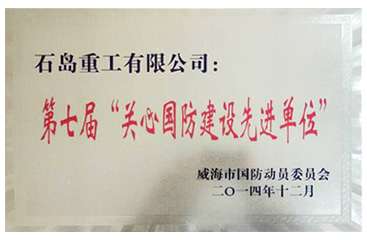 石岛重工有限公司：
第七届“关心国防建设先进单位”
威海市国防动员委员会
二〇一四年十二月